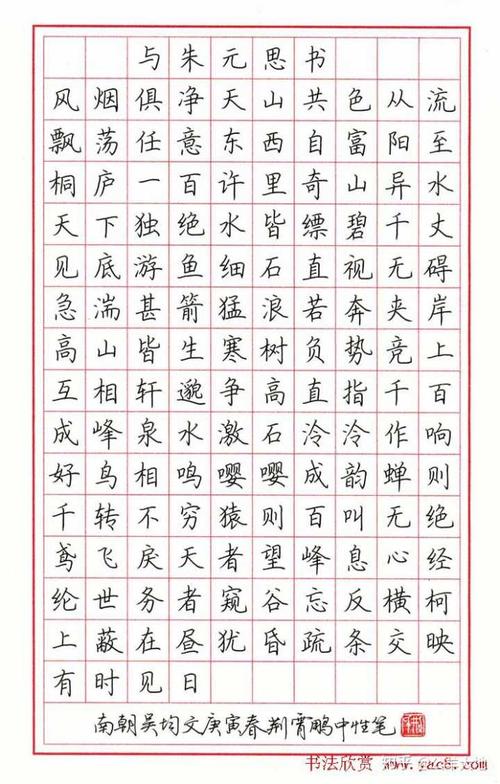 与朱元思书
风烟俱净天山共色从流
飘荡任意东西自富阳至
桐庐一百许里奇山异水
天下独绝水皆缥碧千丈
见底游鱼细石直视无碍
急湍甚箭猛浪若奔夹岸
高山皆生寒树负势竞上
互相轩邈争高直指千百
成峰泉水激石泠泠作响
好鸟相鸣嘤嘤成韵蝉则
千转不穷猿则百叫无绝
鸢飞戾天者望峰息心经
纶世务者窥谷忘反横柯
上蔽在昼犹昏疏条交映
有时见日
南朝吴均文庚寅春荆霄鹏中性笔
书法欣赏 www.yac8.com